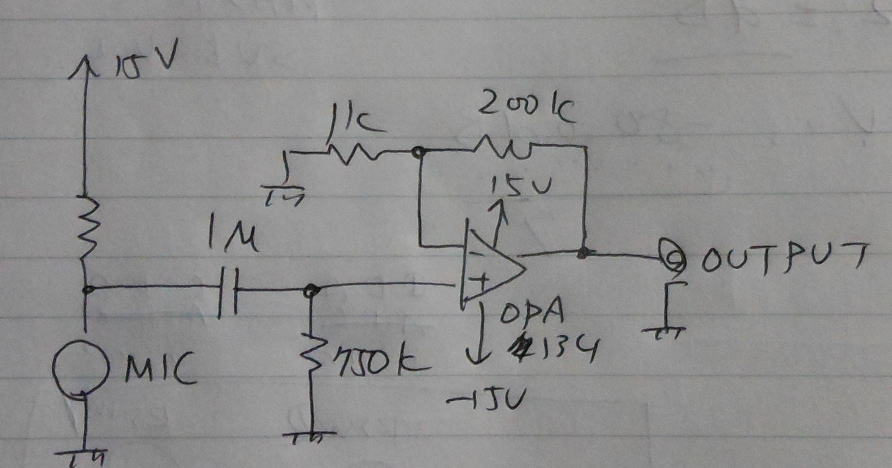 15V
1k
200k
15V
1μ
OUTPUT
OPA
134
MIC
750k
-15V